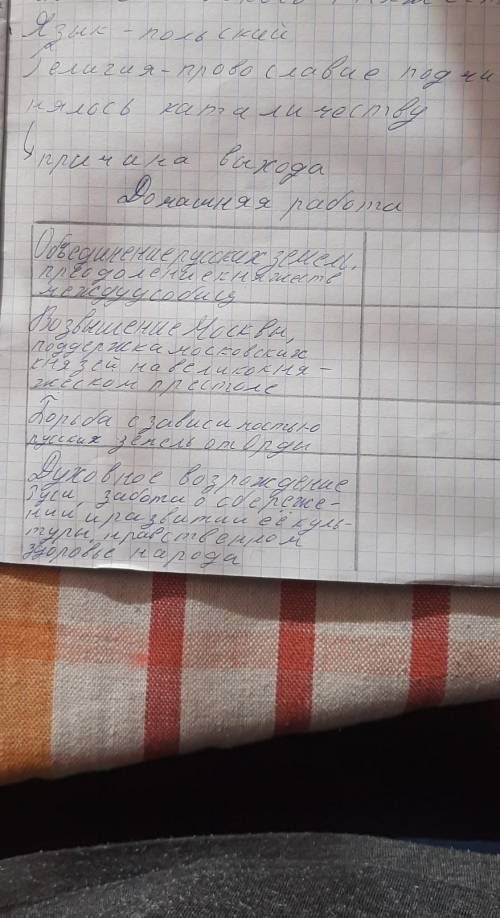 Язык - польский
Религия - провославие подчи
нялось каталичеству
↳ причина выхода
Домашняя работа
Объединение русских земель,
преодоление княжеств
междуусобиц
Возвышение Москвы,
поддержка московских
князей на великокня-
жеском престоле
Борьба с зависимостью
русских земель от Орды
Духовное возрождение
Руси, забота о сбереже-
нии и развитии её куль-
туры, нравственном
здоровье народа